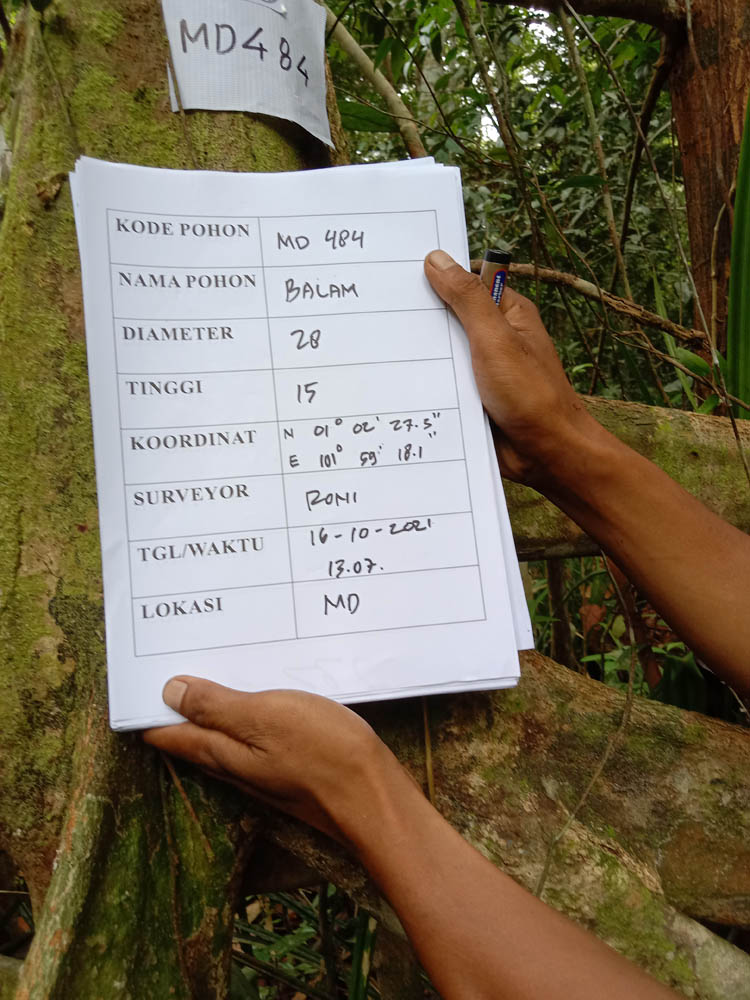 MD484
KODE POHON MD 484
NAMA POHON BALAM
DIAMETER 28
TINGGI 15
KOORDINAT N 01° 02' 27.5"
E 101° 59' 18.1"
SURVEYOR RONI
TGL/WAKTU 16-10-2021
13.07.
LOKASI MD